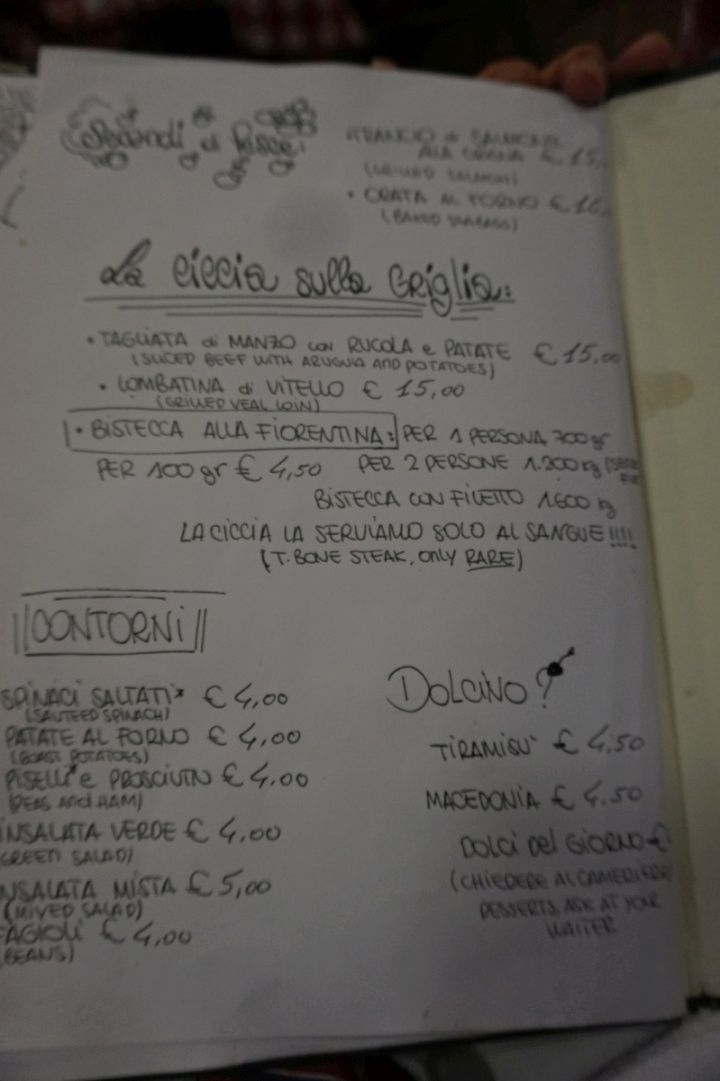 Secondi di Pesce:
TRANCIO di SALMONE
ALLA GRIGLIA € 15,
(GRILLED SALMON)
• ORATA AL FORNO € 16,
(BAKED SEABASS)
La Ciccia sulla Griglia:
• TAGLIATA di MANZO con RUCOLA e PATATE € 15,00
(SLICED BEEF WITH ARUGULA AND POTATOES)
• LOMBATINA di VITELLO € 15,00
(GRILLED VEAL LOIN)
• BISTECCA ALLA FIORENTINA: PER 1 PERSONA 700 gr
PER 100 gr € 4,50 PER 2 PERSONE 1.200 kg
BISTECCA CON FILETTO 1.600 kg
LA CICCIA LA SERVIAMO SOLO AL SANGUE!!!!
(T. BONE STEAK, ONLY RARE)
CONTORNI
SPINACI SALTATI* € 4,00
(SAUTEED SPINACH)
PATATE AL FORNO € 4,00
(ROAST POTATOES)
PISELLI* e PROSCIUTTO € 4,00
(PEAS AND HAM)
INSALATA VERDE € 4,00
GREEN SALAD)
NSALATA MISTA € 5,00
(MIXED SALAD)
FAGIOLI € 4,00
(BEANS)
DOLCINO?
TIRAMISU' € 4,50
MACEDONIA € 4,50
DOLCI DEL GIORNO €
(CHIEDERE AL CAMERIERE
DESSERTS ASK AT YOUR
WAITER